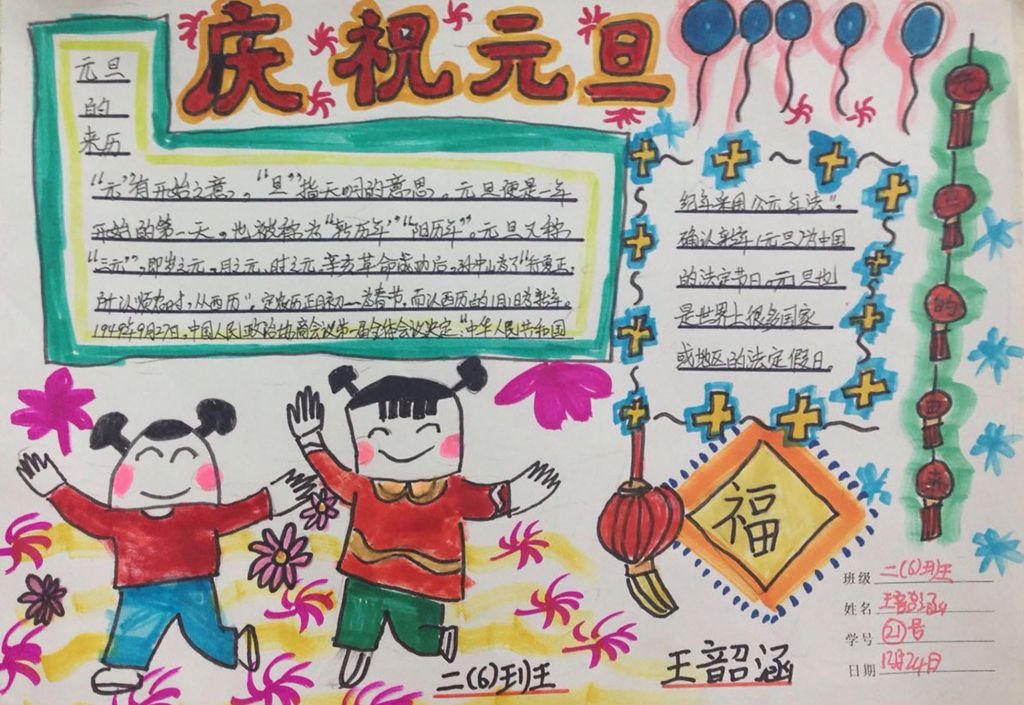 庆祝元旦
元旦
的
来历
"元"有开始之意，"旦"指天明的意思。元旦便是一年
开始的第一天。也被称为"新历年""阳历年"。元旦又称
"三元"，即岁之元、月之元、时之元。辛亥革命成功后，孙中山为了"行夏正，
所以顺农时，从西历"，定农历正月初一为春节，而以西历的1月1日为新年。
1949年9月27日，中国人民政治协商会议第一届全体会议决定："中华人民共和国
纪年采用公元年法"。
确认新年1元旦为中国
的法定节日。元旦也
是世界上很多国家
或地区的法定假日。
元
旦
的
由
来
福
班级 二(6)班
姓名 王韶涵
学号 21号
日期 12月24日
二(6)班
王韶涵